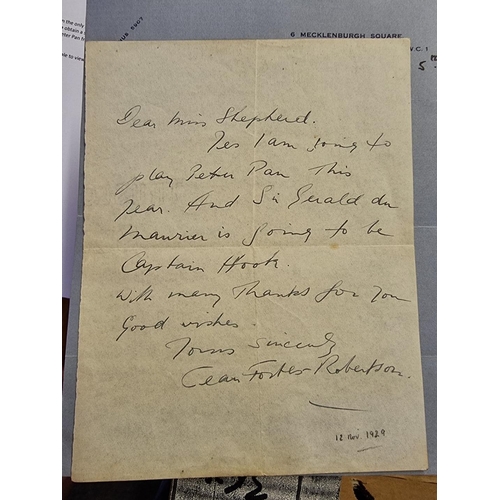 the only
obtain a
Peter Pan h
ale to view
1907
6 MECKLENBURGH SQUARE
W.C. 1
5
Dear Miss Shepherd.
Yes I am going to
play Peter Pan This
year. And Sir Gerald du
Maurier is going to be
Captain Hook.
With many Thanks for you
Good wishes.
Yours Sincerely
Jean Forbes-Robertson.
12 Nov. 1929